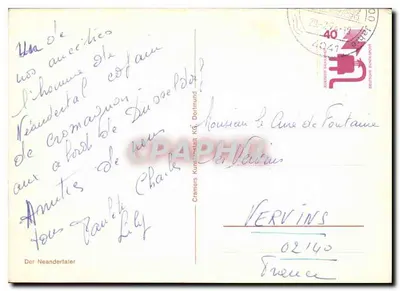 Un de
nos ancêtres
l'homme de
Néandertal copain
de cromagnon.
aux abord de Dusseldorf
Amitiés de nous
tous
Charles
Lily
Der Neandertaler
Cramers Kunstanstalt KG, Dortmund
40
4041
CPAPHIL
Monsieur le
de Fontaine
Vervins
VERVINS
02140
France